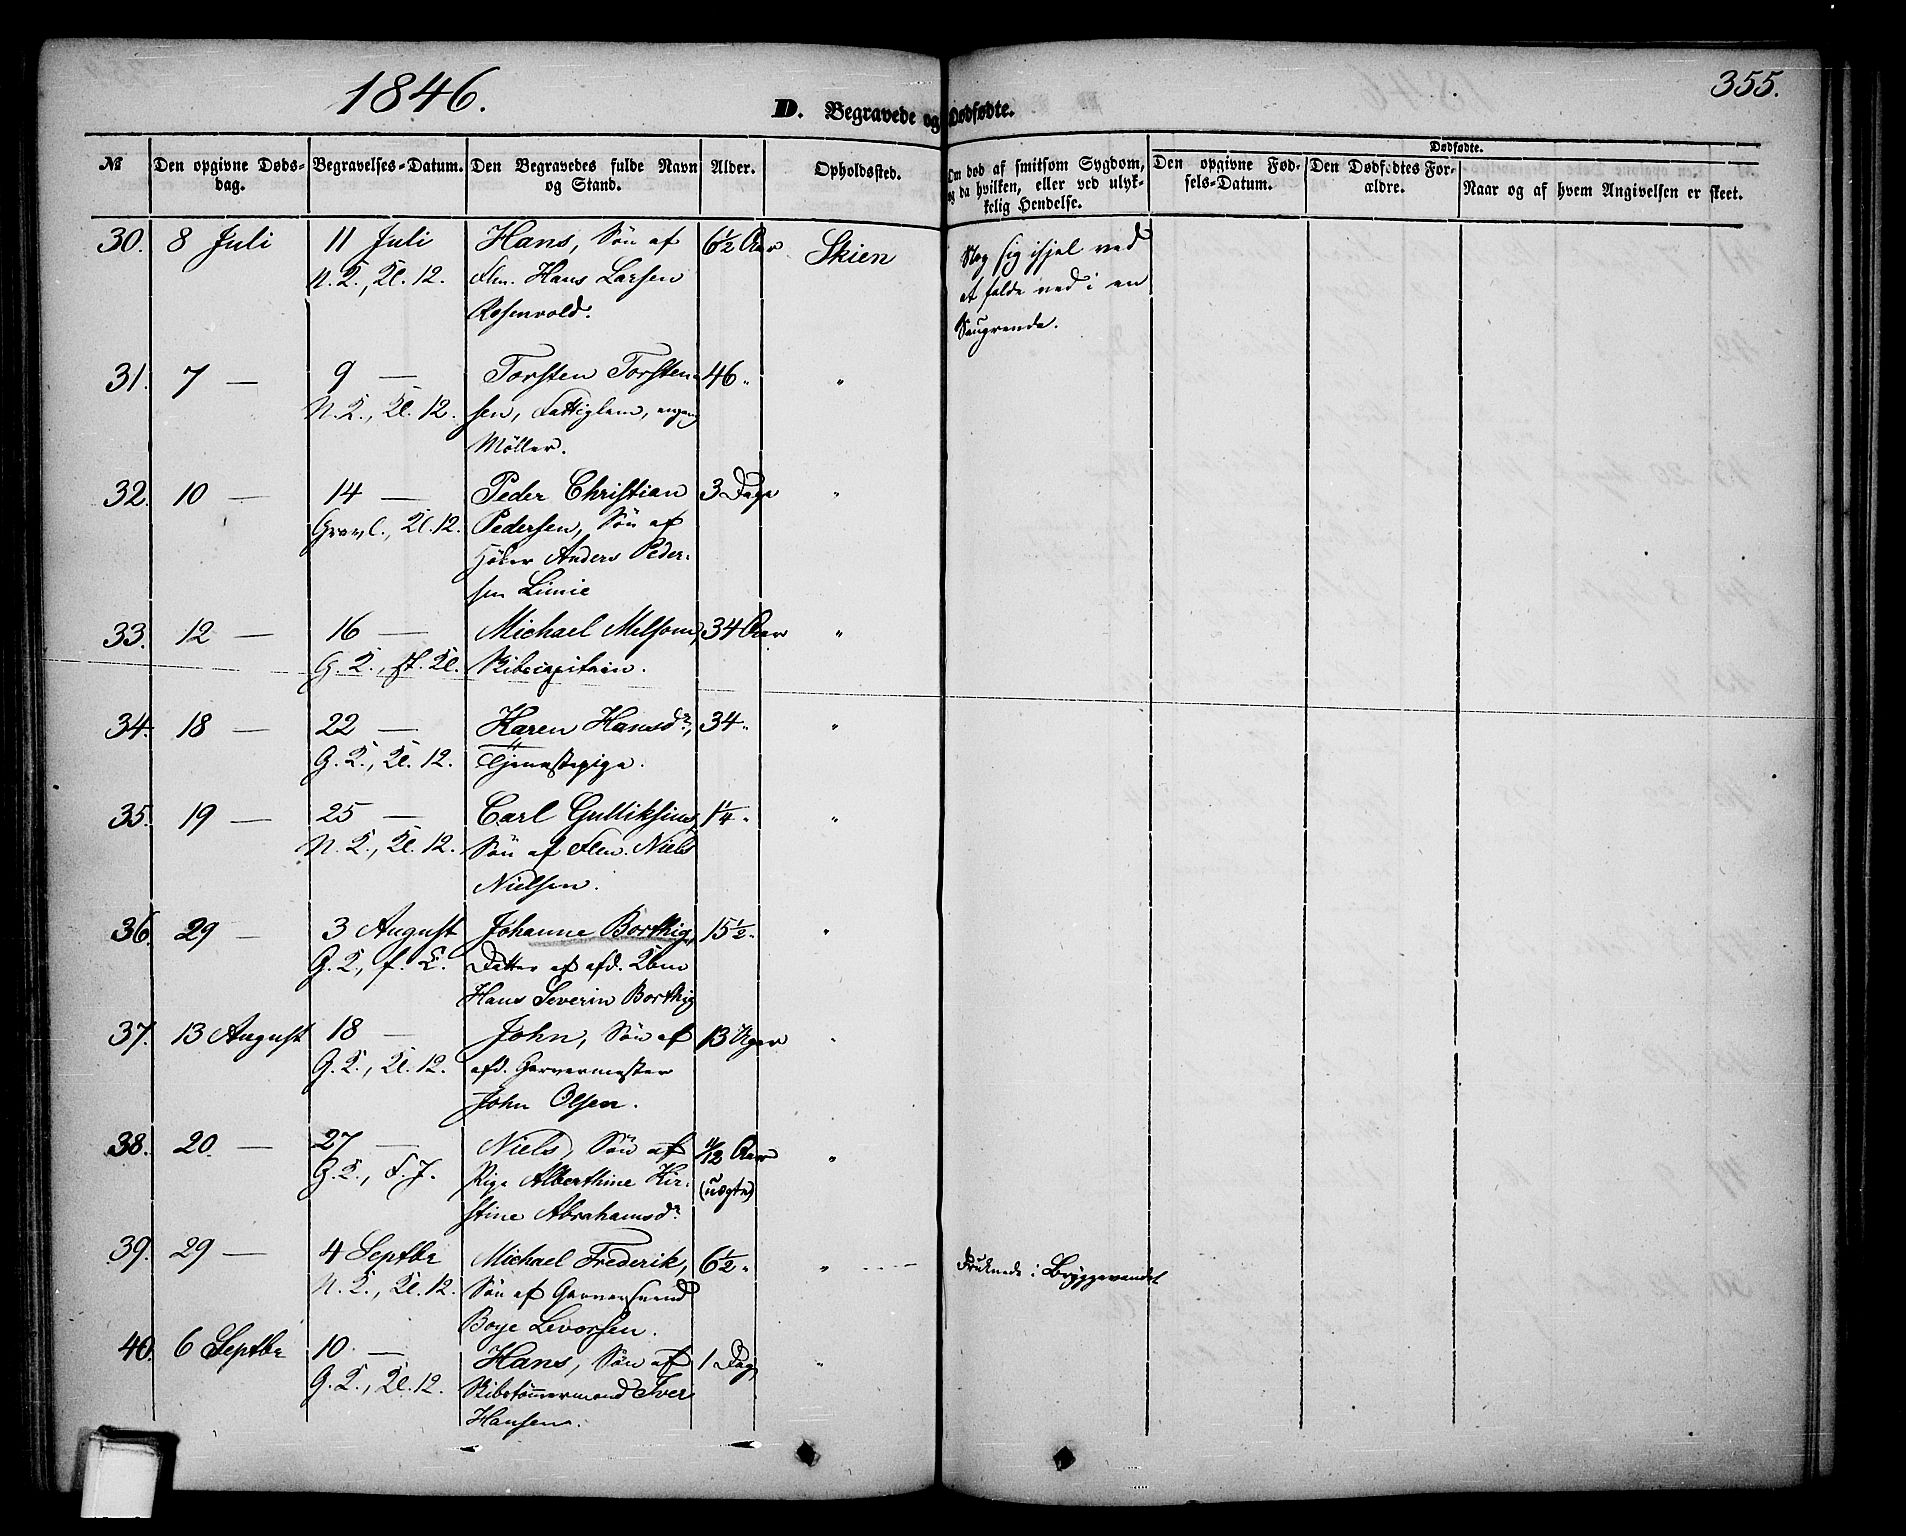 1846.
355.
D. Begravede og Dødfødte.
Dødfødte.
№ Den opgivne Døds- Begravelses-Datum. Den Begravedes fulde Navn Alder. Opholdssted. Om død af smitsom Sygdom, Den opgivne Fød- Den Dødfødtes For- Naar og af hvem Angivelsen er skeet.
dag. og Stand. og da hvilken, eller ved ulyk- sels-Datum. ældre.
kelig Hendelse.
30. 8 Juli 11 Juli Hans, Søn af 6½ Aar Skien Slog sig ihjel ved
N. K., Kl. 12. Hans Larsen at falde ned i en
Rosenvold. Saugrende.
31. 7 — 9 — Torsten Torsten- 46 "
N. K., Kl. 12. sen, Fattiglem,
Møller.
32. 10 — 14 — Peder Christian 3 Dage "
Gravl., Kl. 12. Pedersen, Søn af
Høker Anders Peder-
sen Limie
33. 12 — 16 — Michael Melsom, 34 Aar "
G. K., st. Kl. Skibscapitain.
34. 18 — 22 — Karen Hansdr., 34 " "
G. K., Kl. 12. Tjenestepige.
35. 19 — 25 — Carl Gulliksius, 1¼ " "
N. K., Kl. 12. Søn af Niels
Nielsen.
36. 29 — 3 August Johanne Borthig, 15½ " "
G. K., f. L. Datter af afd.
Hans Severin Borthig
37. 13 August 18 — John, Søn af 13 Uger "
G. K., Kl. 12. afd. Garvermester
John Olsen.
38. 20 — 27 — Niels, Søn af 11/12 Aar "
G. K., F. J. Pige Alberthine Kir- (uægte)
stine Abrahamsdr.
39. 29 — 4 Septbr Michael Frederik, 6½ " " Druknede i Bryggevandet
N. K., Kl. 12. Søn af Garversvend
Boye Levorsen.
40. 6 Septbr 10 — Hans, Søn af 1 Dag "
G. K., Kl. 12. Skibstømmermand Iver
Hansen.